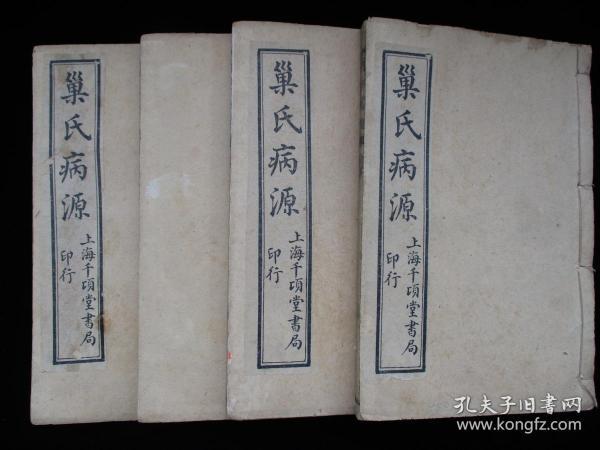 巢氏病源
上海千頃堂書局
印行
巢氏病源
上海千頃堂書局
印行
巢氏病源
上海千頃堂書局
印行
孔夫子旧书网
www.kongfz.com